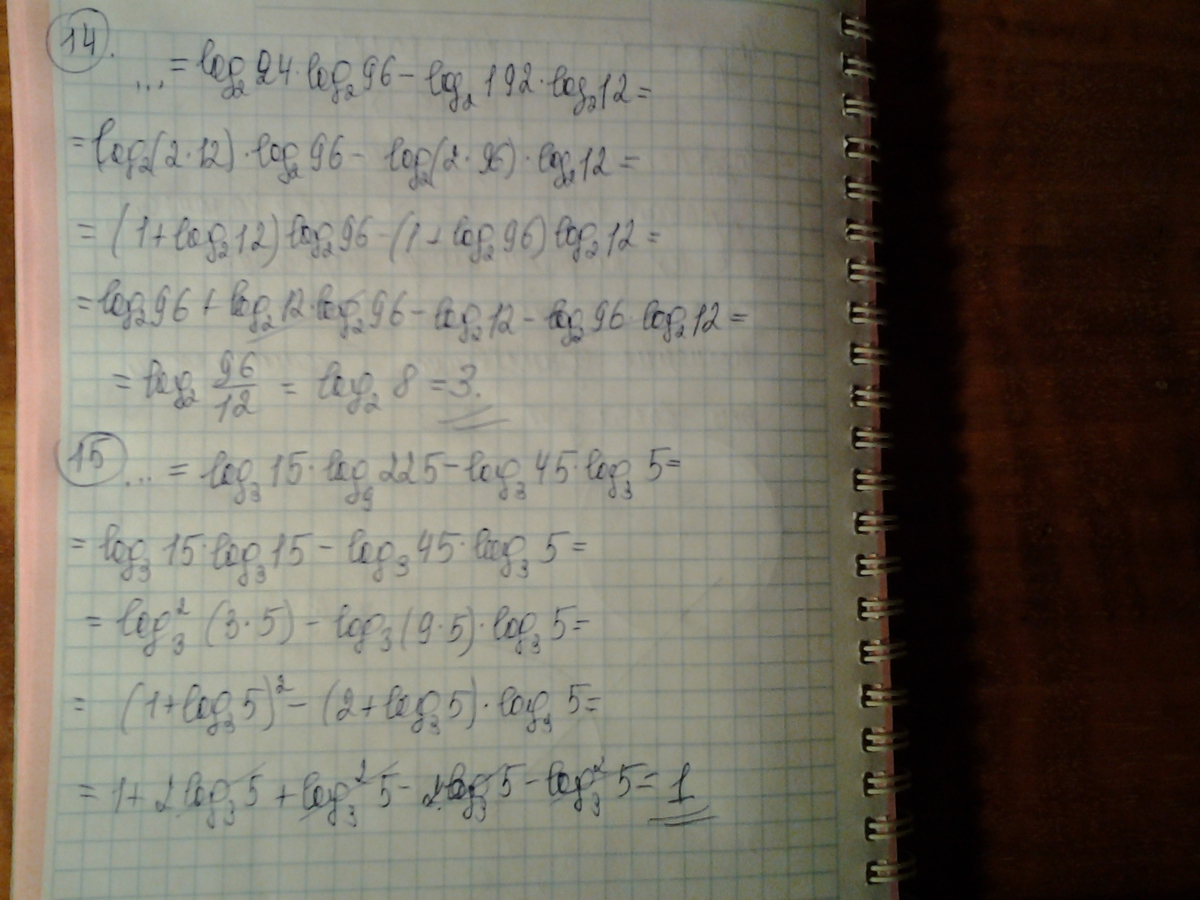 14.
... = log₂24·log₂96 - log₂192·log₂12 =
= log₂(2·12)·log₂96 - log₂(2·96)·log₂12 =
= (1+log₂12)log₂96 - (1+log₂96)log₂12 =
= log₂96 + log₂12·log₂96 - log₂12 - log₂96·log₂12 =
= log₂ 96/12 = log₂8 = 3.
15 ... = log₃15·log₉225 - log₃45·log₃5 =
= log₃15·log₃15 - log₃45·log₃5 =
= log₃²(3·5) - log₃(9·5)·log₃5 =
= (1+log₃5)² - (2+log₃5)·log₃5 =
= 1 + 2log₃5 + log₃²5 - 2log₃5 - log₃²5 = 1